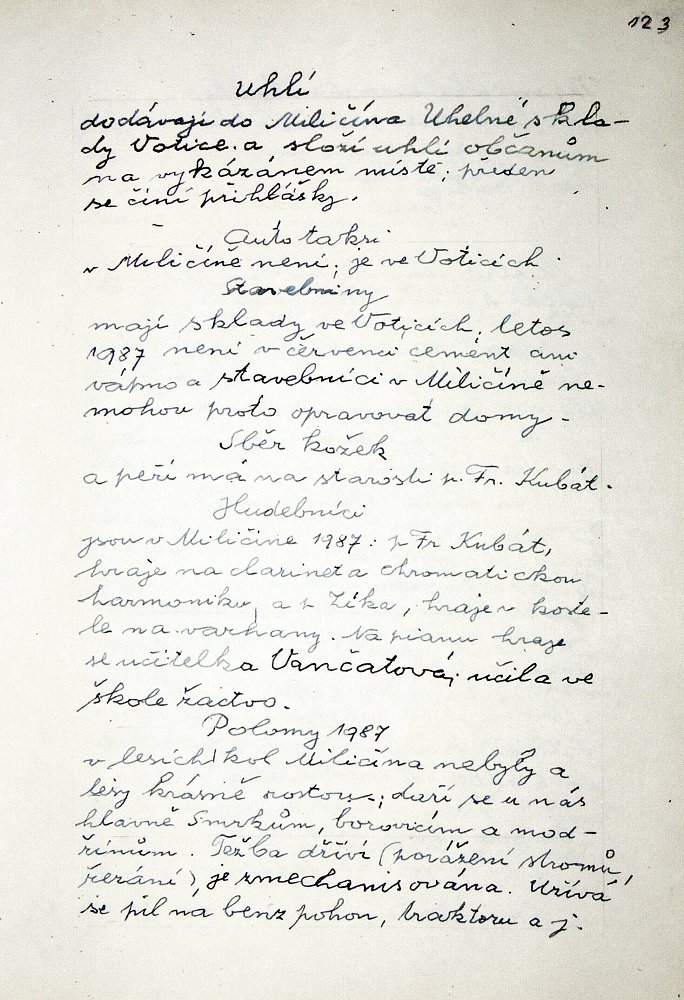 123
Uhlí
dodávají do Miličína Uhelné skla-
dy Votice. a složí uhlí občanům
na vykázaném místě; předem
se činí přihlášky.
Auto taksi
v Miličíně není; je ve Voticích
Stavebniny
mají sklady ve Voticích; letos
1987 není v červenci cement ani
vápno a stavebníci v Miličíně ne-
mohou proto opravovat domy -
Sběr kožek
a peří má na starosti p. Fr. Kubát.
Hudebníci
jsou v Miličíne 1987: p Fr Kubát,
hraje na clarinet a chromatickou
harmoniku, a p Zíka, hraje v koste-
le na varhany. Na pianu hraje
se učitelka Vančatová; učila ve
škole žactvo.
Polomy 1987
v lesích kol Miličína nebyly a
lesy krásně rostou; daří se u nás
hlavně Smrkům, borovicím a mod-
řínům. Težba dříví (porážení stromů,
řezání), je zmechanisována. Užívá
se pil na benz pohon, traktoru a j.